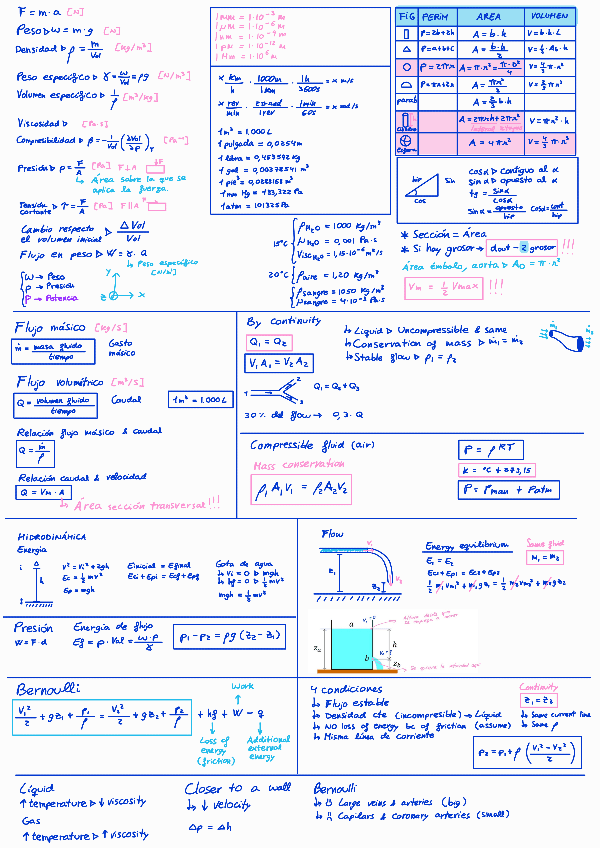 F = m·a [N]
Peso ▷ w = m·g [N]
Densidad ▷ ρ = m/Vol [kg/m³]
Peso específico ▷ γ = w/Vol = ρg [N/m³]
Volumen específico ▷ 1/ρ [m³/kg]
Viscosidad ▷ [Pa·s]
Compresibilidad ▷ [Pa⁻¹]
Presión ▷ p = F/A [Pa] F⊥A
Área sobre la que se aplica la fuerza.
Tensión cortante ▷ τ = F/A [Pa] F∥A
Cambio respecto el volumen inicial ▷ ΔVol/Vol
Flujo en peso ▷ W = γ·Q
Peso específico [N/m³]
W → Peso
p → Presión
P → Potencia
Y
Z
X
1 mm = 1·10⁻³ m
1 μm = 1·10⁻⁶ m
1 nm = 1·10⁻⁹ m
1 pm = 1·10⁻¹² m
x km/h · 1000m/1km · 1h/3600s = x m/s
x rev/min · 2π rad/1rev · 1min/60s = x rad/s
1 m³ = 1.000 L
1 pulgada = 0,0254 m
1 libra = 0,453592 kg
1 gal = 0,00378541 m³
1 pie³ = 0,0283168 m³
1 mm Hg = 133,322 Pa
1 atm = 101325 Pa
15°C
ρH₂O = 1000 kg/m³
μH₂O = 0,001 Pa·s
ViscH₂O = 1,15·10⁻⁶ m²/s
20°C
ρaire = 1,20 kg/m³
ρsangre = 1050 kg/m³
μsangre = 4·10⁻³ Pa·s
FIG PERIM AREA VOLUMEN
P = 2b+2h A = b·h V = b·h·L
P = a+b+c A = b·h/2 V = 1/3·Ab·h
P = 2πr A = π·r² = π·D²/4 V = 4/3 π·r³
P = πr+2r A = πr²/2 V = 2/3 π·r³
parab A = 2/3 b·h
cilindro A = 2πrh+2πr² V = πr²·h
esfera A = 4πr² V = 4/3 π·r³
hip
sin
cos
cos α ▷ contiguo al α
sin α ▷ opuesto al α
tg = sin α/cos α
sin α = opuesto/hip cos α = cont/hip
* Sección = Área
* Si hay grosor → dout − 2 grosor !!!
Área émbolo, aorta ▷ A₀ = π·r²
Vm = 1/2 Vmax !!!
Flujo másico [kg/s]
ṁ = masa fluido/tiempo Gasto másico
Flujo volumétrico [m³/s]
Q = volumen fluido/tiempo Caudal 1m³ = 1.000L
Relación flujo másico & caudal
Q = ṁ/ρ
Relación caudal & velocidad
Q = Vm·A
↳ Área sección transversal !!!
By continuity
Q₁ = Q₂
V₁A₁ = V₂A₂
↳ Liquid ▷ Uncompressible & same
↳ Conservation of mass ▷ ṁ₁ = ṁ₂
↳ Stable flow ▷ ρ₁ = ρ₂
1
2
3
Q₁ = Q₂ + Q₃
30% del flow → 0,3·Q
Compressible fluid (air)
Mass conservation
ρ₁A₁V₁ = ρ₂A₂V₂
P = ρRT
K = °C + 273,15
P = Pman + Patm
HIDRODINÁMICA
Energía
i
h
f
V² = Vi² + 2gh
Ec = 1/2 mv²
Ep = mgh
Einicial = Efinal
Eci + Epi = Ecf + Epf
Gota de agua
↳ Vi = 0 ▷ mgh
↳ hf = 0 ▷ 1/2 mv²
mgh = 1/2 v²
Presión
W = F·d
Energía de flujo
Ef = p·Vol = w·p/γ
p₁−p₂ = ρg(z₂−z₁)
Flow
V₁
E₁
z₂
V₂
Energy equilibrium
E₁ = E₂
Ec₁ + Ep₁ = Ec₂ + Ep₂
1/2 ṁ₁V₁² + ṁ₁gz₁ = 1/2 ṁ₂V₂² + ṁ₂gz₂
Same fluid
ṁ₁ = ṁ₂
a
b
h
z_a
z_b
Bernoulli
V₁²/2 + gz₁ + p₁/ρ = V₂²/2 + gz₂ + p₂/ρ + hf + W − q
Work
Loss of energy (friction)
Additional external energy
4 condiciones
↳ Flujo estable
↳ Densidad cte (incompresible) → Líquid
↳ No loss of energy bc of friction (assume)
↳ Misma línea de corriente
Continuity
z₁ = z₂
↳ Same current line
↳ Same ρ
p₂ = p₁ + ρ(V₁²−V₂²/2)
Líquid
↑ temperature ▷ ↓ viscosity
Gas
↑ temperature ▷ ↑ viscosity
Closer to a wall
↳ ↓ velocity
Δp = Δh
Bernoulli
↳ Large veins & arteries (big)
↳ Capilars & coronary arteries (small)